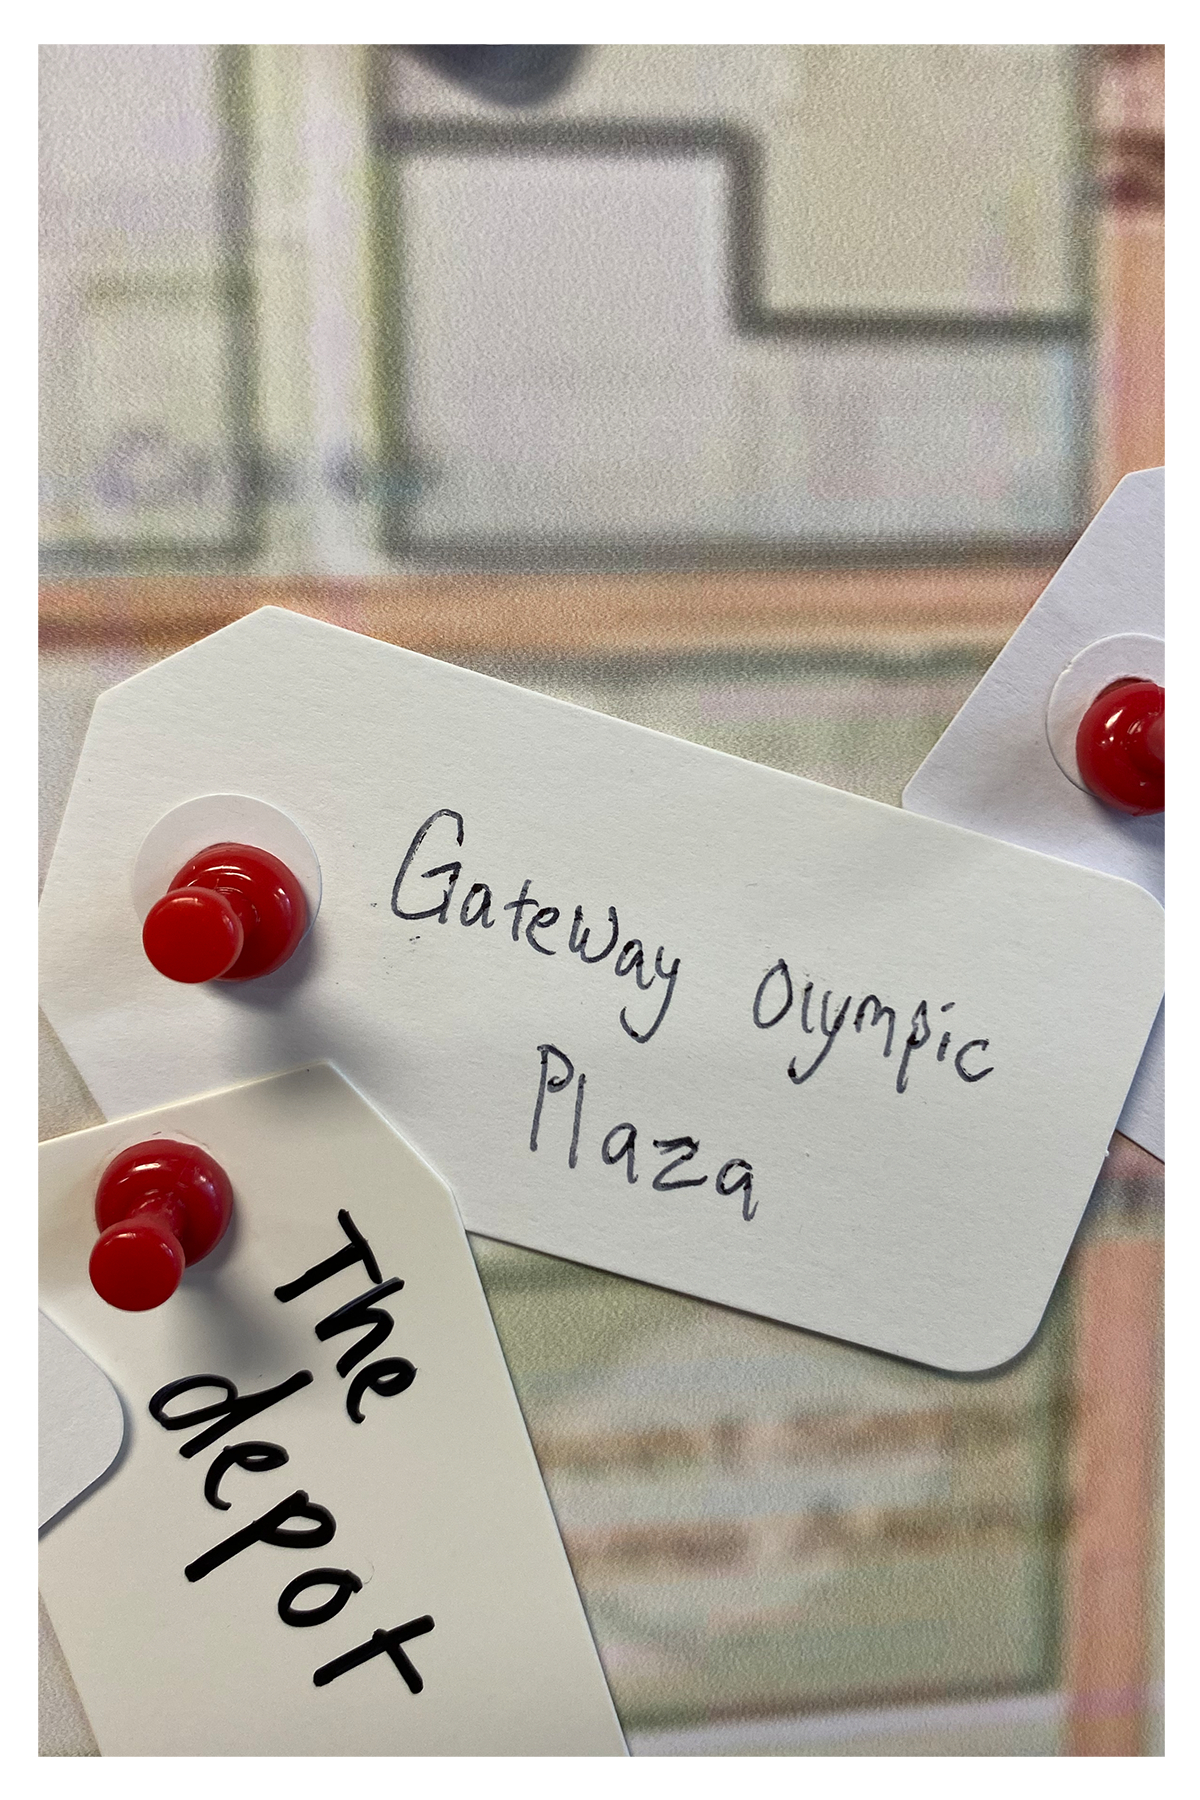 Gateway Olympic
Plaza
The
depot